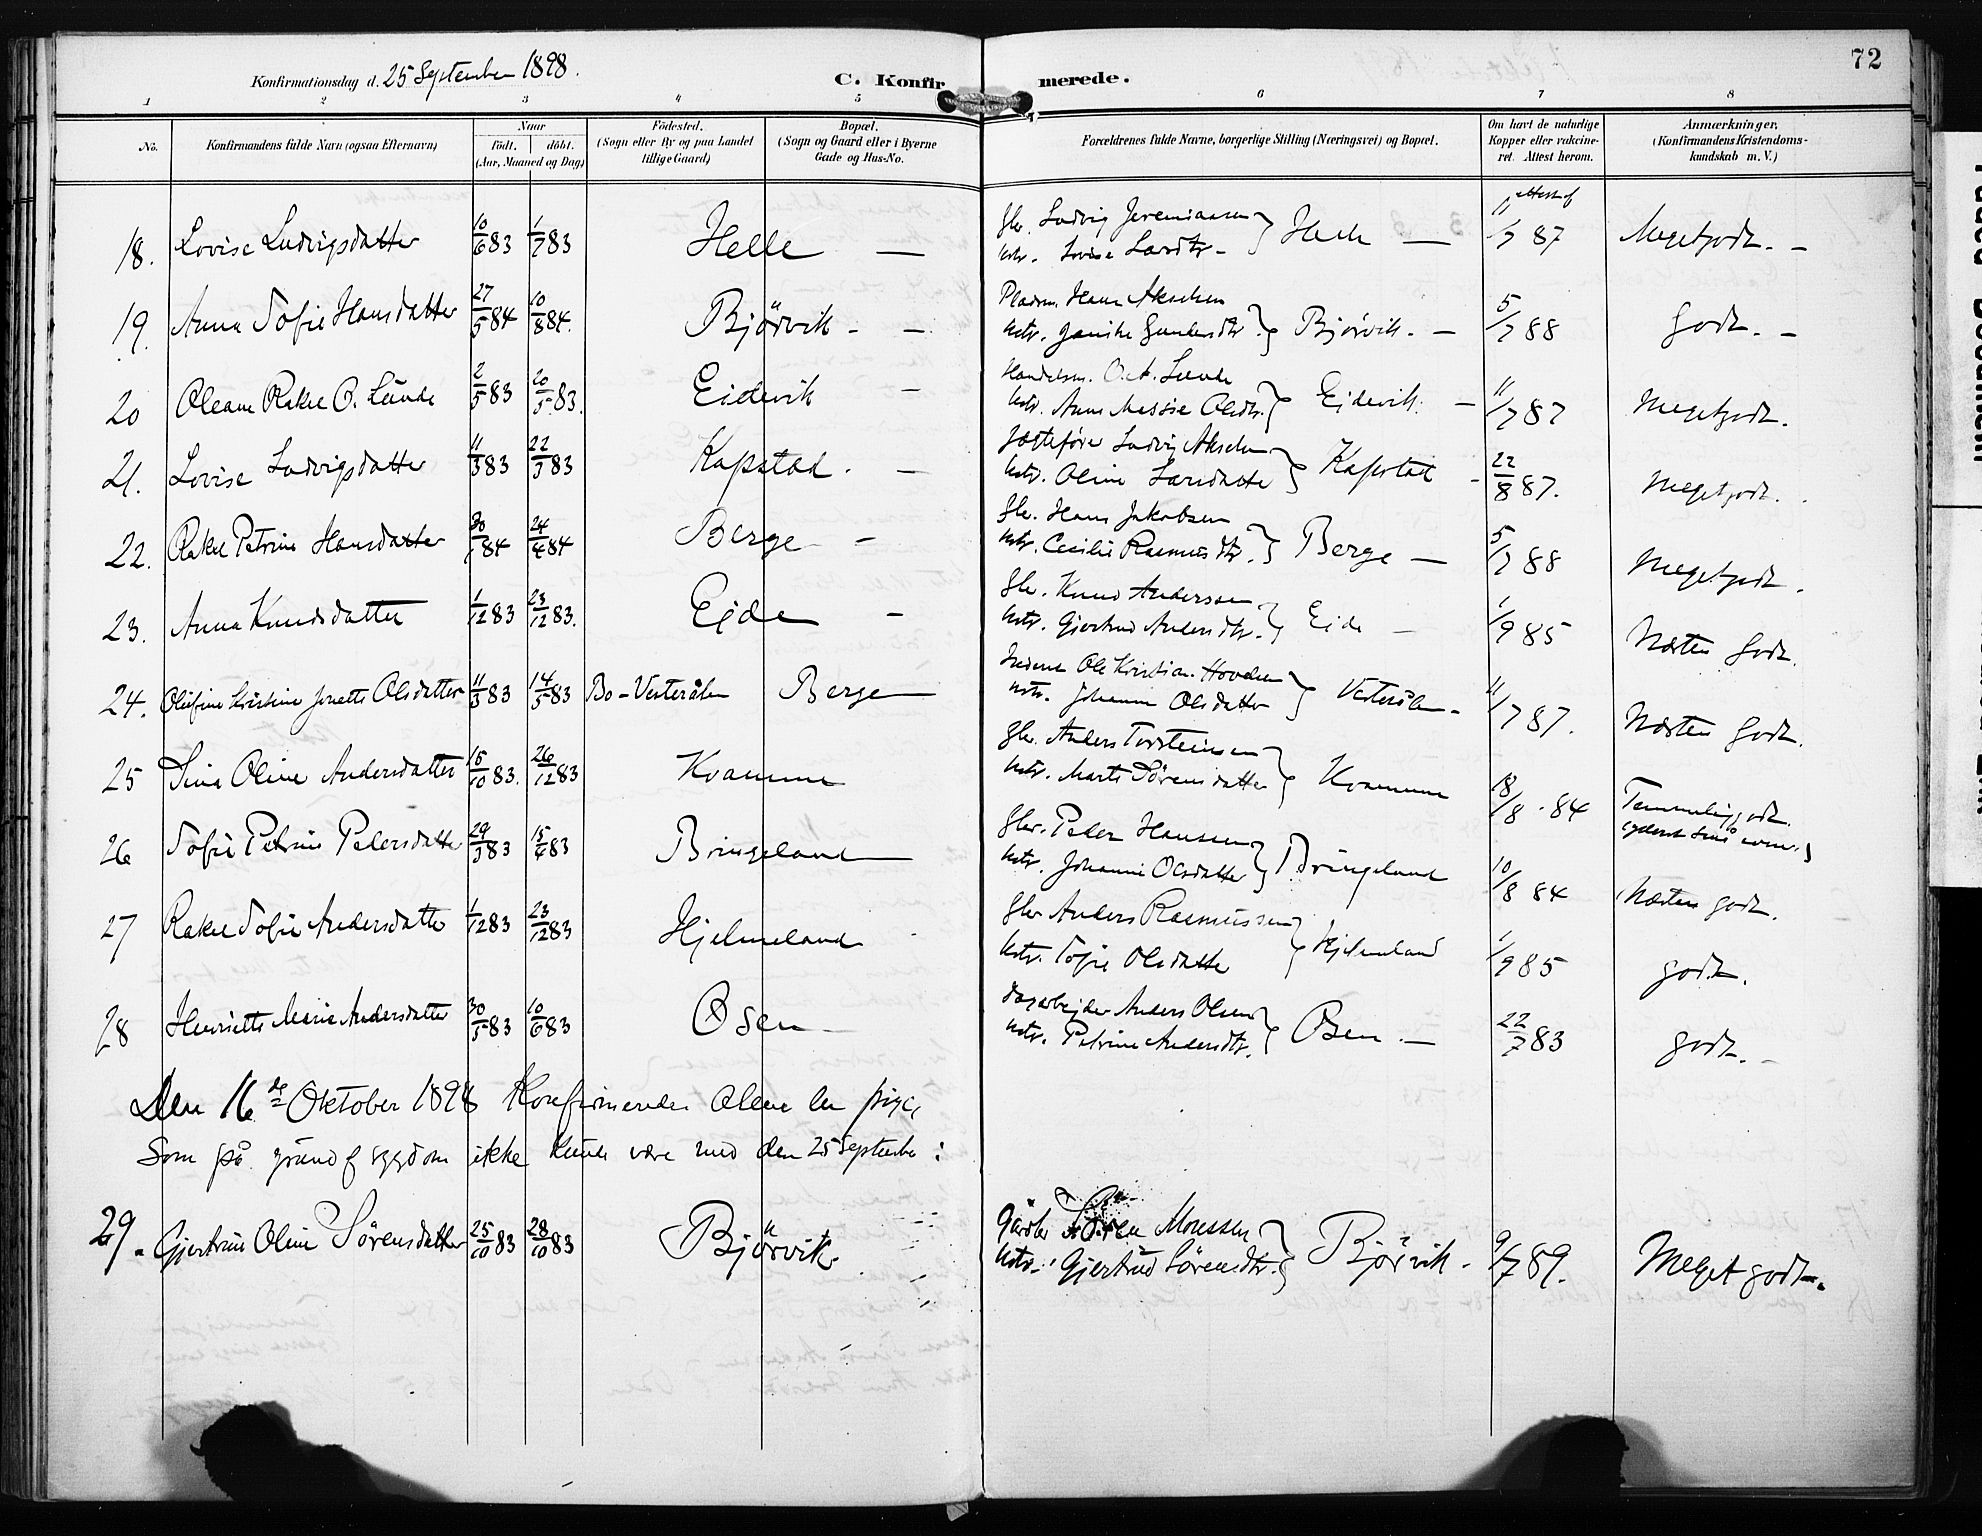 72
Konfirmationsdag d. 25 September 1898.
C. Konfirmerede.
1 2 3 4 5 6 7 8
No.
Konfirmandens fulde Navn (ogsaa Efternavn)
Naar
født. døbt.
(Aar, Maaned og Dag)
Fødested.
(Sogn eller By og paa Landet
tillige Gaard)
Bopæl.
(Sogn og Gaard eller i Byerne
Gade og Hus-No.
Forældrenes fulde Navne, borgerlige Stilling (Næringsvei) og Bopæl.
Om havt de naturlige
Kopper eller vakcine-
ret. Attest herom.
Anmærkninger.
(Konfirmandens Kristendoms-
kundskab m. V.)
18. Lovise Ludvigsdatter 10/6 83 1/7 83 Helle —
Ludvig Jeremiassen
Lovise Larsdtr. Helle — attest af 11/7 87 Megetgodt. –
19. Anna Sofie Hansdatter 27/5 84 10/8 84. Bjørvik. –
Pladsm. Hans Akselsen
hstr. Janike Gundersdtr. Bjørvik. — 5/7 88 godt. –
20 Oleane Rakel O. Lunde 2/5 83 20/5 83. Eidevik –
Handelsm. O. A. Lunde
hstr. Anne Massie Olsdtr. Eidevik. – 11/7 87 Megetgodt.
21. Lovise Ludvigsdatter 11/3 83 22/3 83 Kapstad. –
Jægtefører Ludvig Akselsen
hstr. Oline Larsdatter Kapstad - 22/8 87. Megetgodt.
22. Rakel Petrine Hansdatter 30/1 84 24/4 84 Berge –
Gbr. Hans Jakobsen
hstr. Cecilie Rasmusdtr. Berge — 5/7 88 Megetgodt.
23. Anna Knudsdatter 1/12 83 23/12 83. Eide –
Gbr. Knud Anderssen
hstr. Gjertrud Andersdtr. Eide – 1/9 85 Næsten godt.
24. Olufine Kristine Jonette Olsdatter 11/3 83 14/5 83 Bo - Vesterålen Berge
Ole Kristian Hovden
hstr. Johanne Olsdatter Vesterålen - 11/7 87. Næsten godt.
25 Sina Oline Andersdatter 15/10 83. 26/12 83 Kvamme
Gbr. Anders Torsteinsen
hstr. Marte Sørensdatter Kvamme 18/8 . 84 Temmelig godt.
26 Sofie Petrine Petersdatter 29/3 83 15/4 83 Bringeland
Gbr. Peder Hansen
hstr. Johanne Olsdatter Bringeland 10/8 84 Næsten godt.
27 Rakel Sofie Andersdatter 1/12 83 23/12 83 Hjelmeland
Gbr Anders Rasmussen
hstr. Sofie Olsdatter Hjelmeland 1/9 85 godt.
28 Henriette Marie Andersdatter 30/5 83 10/6 83 Osen
Dagarbejder Anders Olsen
hstr. Petrine Andersdtr. Osen. — 22/7 83 godt. –
Den 16de Oktober 1898 Konfirmeredes Alene en pige,
Som på grund af sygdom ikke kunde være med den 25 September:
29. Gjertrine Oline Sørensdatter 25/10 83 28/10 83 Bjørvik.
Gårdbr Søren Monssen
hstr. Gjertrud Sørensdtr. Bjørvik. 9/7 89. Meget godt.